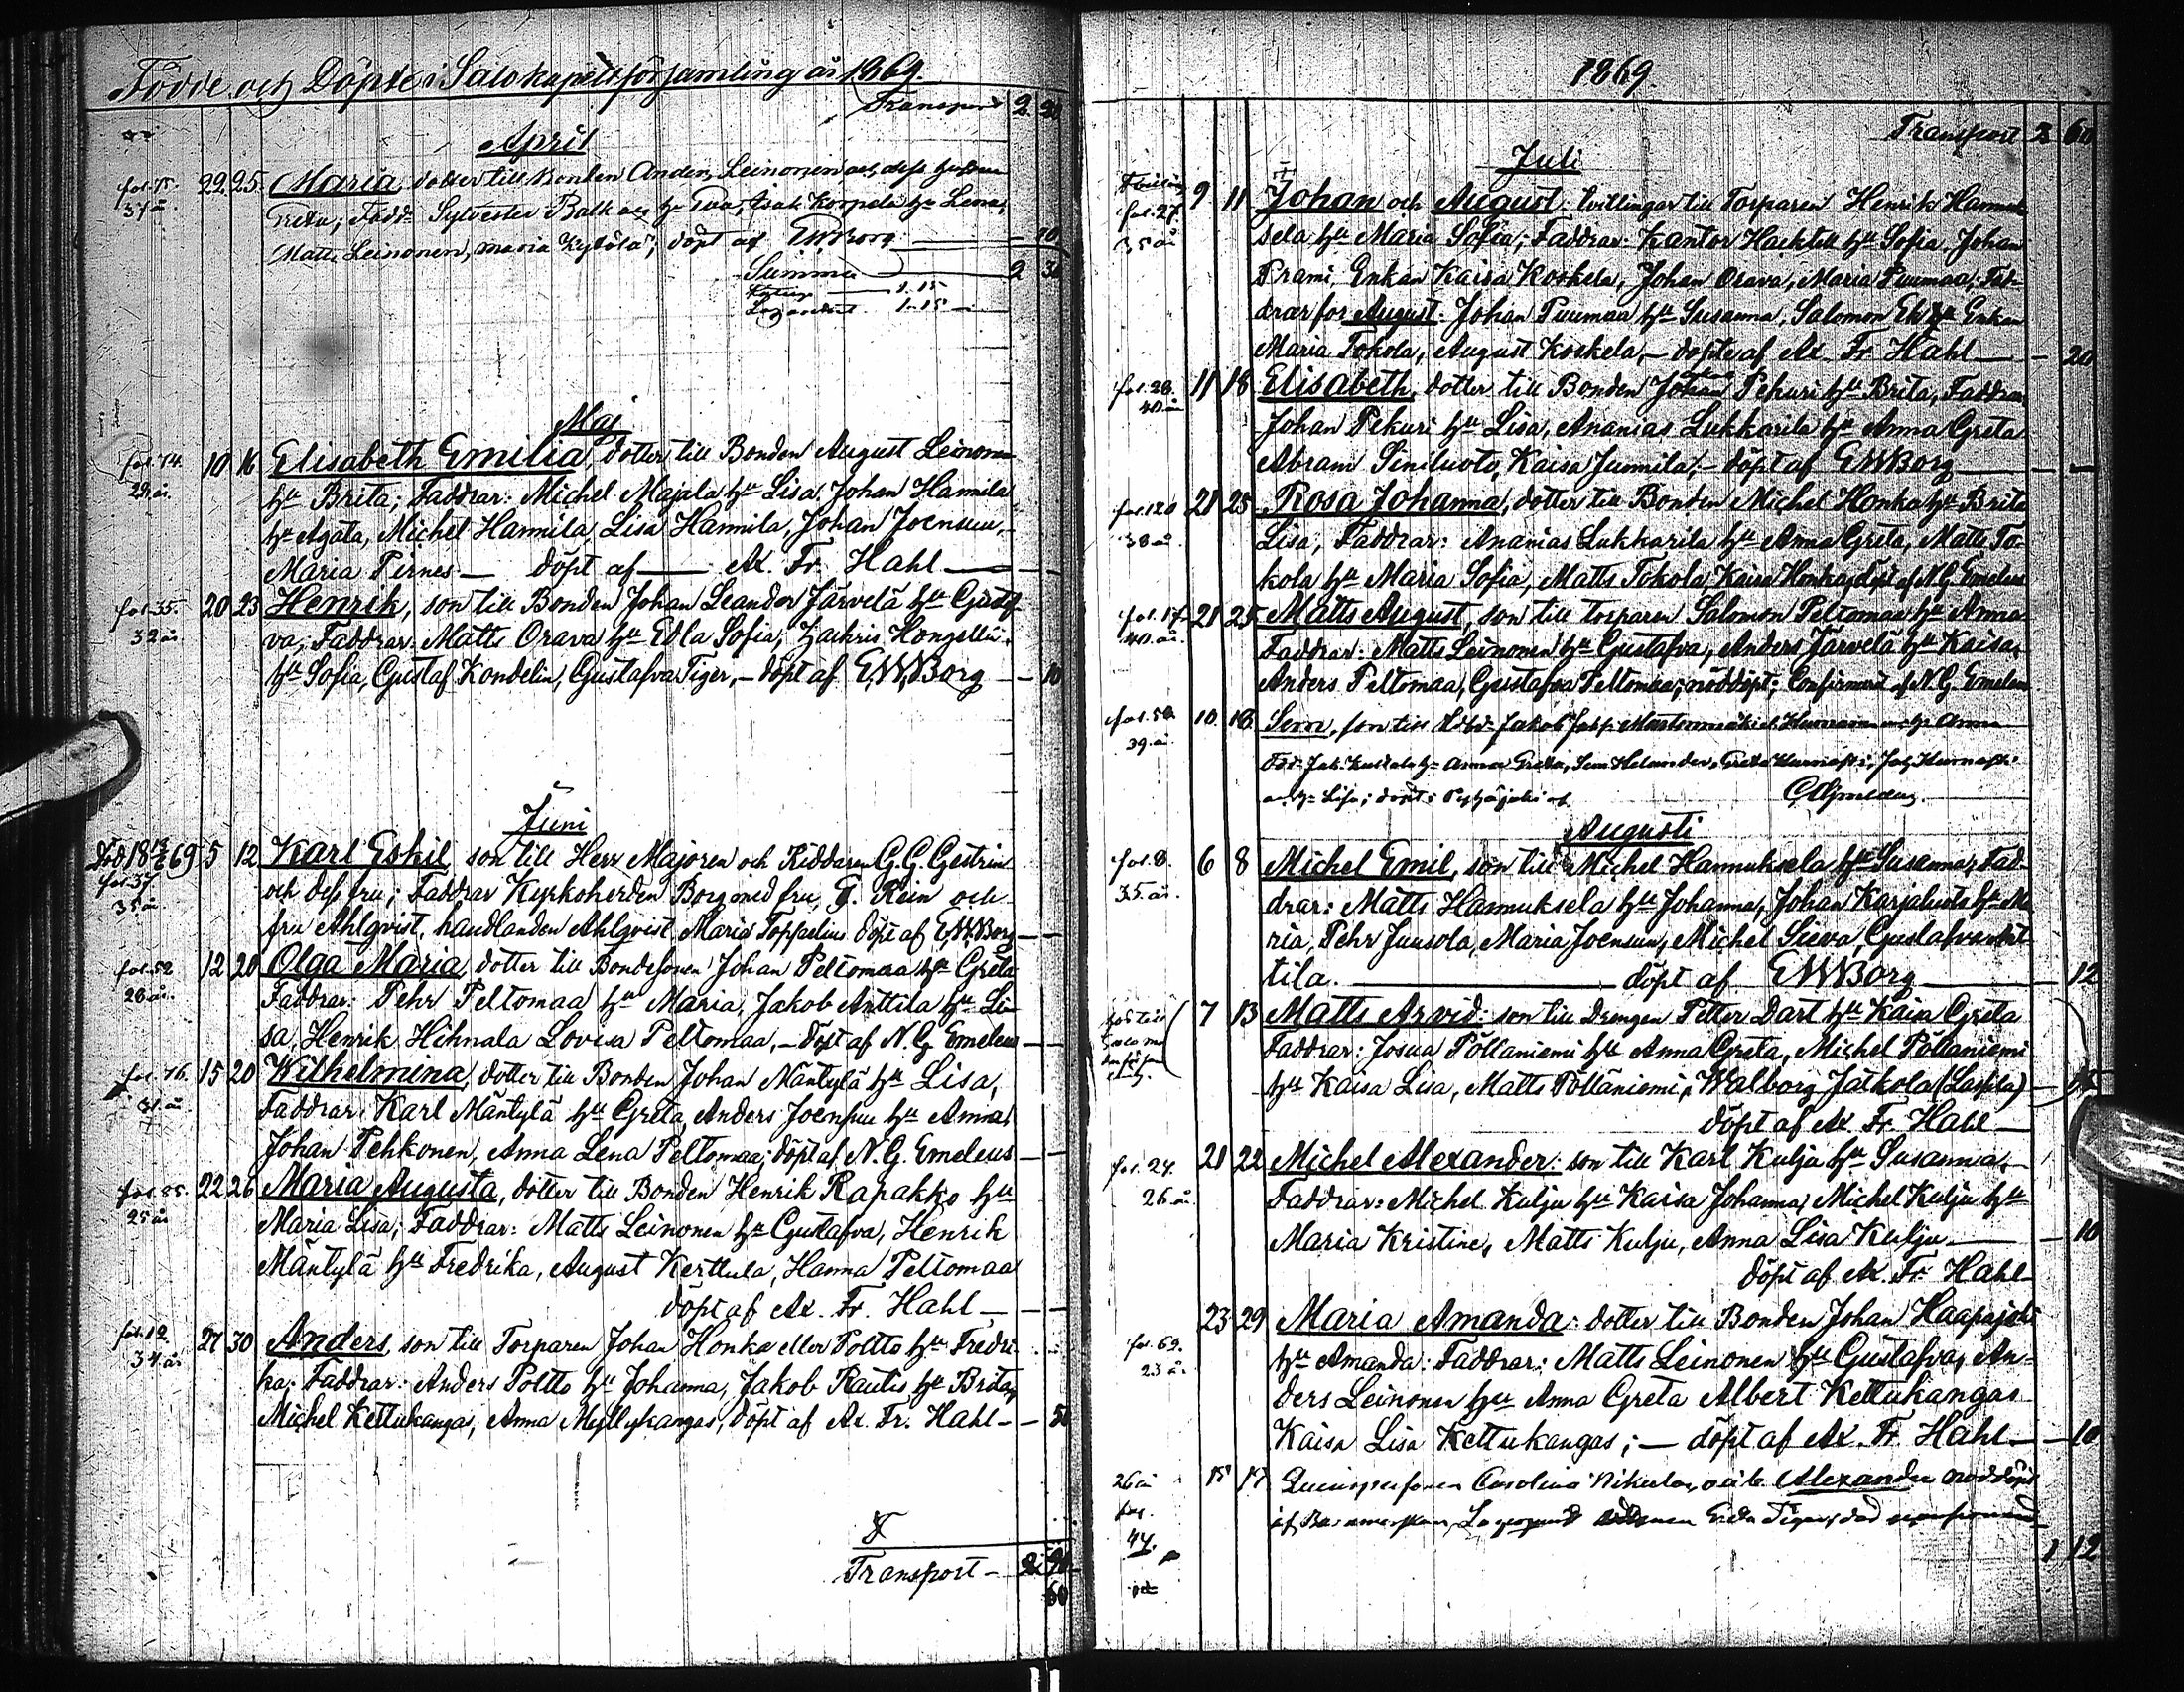 Födde och Döpte i Salo kapellsförsamling år 1869.
Transport 2. 20
April
fol. 75. 22. 25. Maria, dotter till Bonden Anders Leinonen och dess hustru
37 år. Greta; Fadd: Sylvester Balk och h. Eva, Isak Korpela h. Lena,
Matts Leinonen, Maria Kylölä; döpt af EWBorg — 10
Summa 2 30
1. 15
1. 15
Maj
fol. 74. 10 16 Elisabeth Emilia, dotter till Bonden August Leinonen
29 år. hu Brita; Faddrar: Michel Majala hu Lisa, Johan Hannila
hu Agata, Michel Hannila, Lisa Hannila, Johan Joensuu,
Maria Pirnes — döpt af — Ax. Fr. Hahl —
fol. 35. 20 23 Henrik, son till Bonden Johan Leander Järvelä hu Gustaf-
32 år. va; Faddrar: Matts Orava hu Edla Sofia, Zachris Hongelin
hu Sofia, Gustaf Kondelin, Gustafva Tiger, — döpt af E.W.Borg — 10
Juni
Död 18 69 5 12 Karl Eskil, son till Herr Majoren och Riddaren G. G. Gestrin
fol. 37 och dess fru; Faddrar Kyrkoherden Borg med fru, G. Rein och
35 år fru Ahlqvist, handlanden Ahlqvist, Maria Toppelius döpt af EWBorg —
fol. 52 12 20 Olga Maria, dotter till Bondesonen Johan Peltomaa hu Greta
26 år. Faddrar: Pehr Peltomaa hu Maria, Jakob Anttila hu Li-
sa, Henrik Hihnala Lovisa Peltomaa, — döpt af N. G. Emeleus —
fol. 76. 15 20 Wilhelmina, dotter till Bonden Johan Mäntylä hu Lisa,
31 år Faddrar: Karl Mäntylä hu Greta, Anders Joensuu hu Anna,
Johan Pehkonen, Anna Lena Peltomaa; döpt af N. G. Emeleus —
fol. 85. 22 26 Maria Augusta, dotter till Bonden Henrik Rapakko hu
25 år Maria Lisa; Faddrar: Matts Leinonen hu Gustafva, Henrik
Mäntylä hu Fredrika, August Kerttula, Hanna Peltomaa
döpt af Ax. Fr. Hahl —
fol. 12. 27 30 Anders, son till Torparen Johan Honka eller Poltto hu Fredri-
34 år ka. Faddrar: Anders Poltto hu Johanna, Jakob Rautio hu Brita,
Michel Kettukangas, Anna Myllykangas, döpt af Ax. Fr. Hahl — 50
Transport — 2 90
60
1869.
Transport 2 60
Juli
fol. 27. 9 11 Johan och August tvillingar till Torparen Henrik Hannuk-
35 år sela hu Maria Sofia; Faddrar: Kantor Hacktell hu Sofia, Johan
Prami, Enkan Kaisa Koskela, Johan Orava, Maria Puumaa; Fad-
drar for August. Johan Puumaa hu Susanna, Salomon Ek Enkan
Maria Tokola, August Koskela, — döpte af Ax. Fr. Hahl — 20
fol. 28. 11 18 Elisabeth, dotter till Bonden Johan Pekuri hu Brita, Faddrar,
40 år Johan Pekuri hu Lisa, Ananias Lukkarila hu Anna Greta
Abram Siniluoto, Kaisa Junnila; — döpt af EWBorg —
fol. 120 21 25 Rosa Johanna, dotter till Bonden Michel Honka hu Brita
38 år. Lisa, Faddrar: Ananias Lukkarila hu Anna Greta, Matts To-
kola hu Maria Sofia, Matts Tokola, Kaisa Honka, döpt af N. G. Emeleus
fol. 17 21 25 Matts August, son till torparen Salomon Peltomaa hu Anna
40 år. Faddrar: Matts Leinonen hu Gustafva, Anders Järvelä hu Kaisa,
Anders Peltomaa, Gustafva Peltomaa; nöddöpt; Confirmerad af N. G. Emeleus
fol. 50. 10. 18. Sem, son till Jakob och h. Anna
39. år. h. Anna Greta, Sem Helander, Greta
h. Lisa; döpt i Pyhäjoki af
Augusti
fol. 8. 6 8 Michel Emil, son till Michel Hannuksela hu Susanna, Fad-
35. år. drar: Matts Hannuksela hu Johanna, Johan Karjaluoto hu Ma-
ria, Pehr Juusola, Maria Joensuu, Michel Sieva, Gustafva
tila. — döpt af EWBorg — 12
7 13 Matts Arvid: son till Drengen Petter Dart hu Kaisa Greta
Faddrar: Josua Pölläniemi hu Anna Greta, Michel Pölläniemi
hu Kaisa Lisa, Matts Pölläniemi, Walborg Jatkola (Lassila) —
döpt af Ax. Fr. Hahl —
fol. 24. 20 22 Michel Alexander: son till Karl Kulju hu Susanna,
26 år. Faddrar: Michel Kulju hu Kaisa Johanna, Michel Kulju hu
Maria Kristine, Matts Kulju, Anna Lisa Kulju — 10
döpt af Ax. Fr. Hahl
23 29 Maria Amanda: dotter till Bonden Johan Haapajoki
fol. 69. hu Amanda: Faddrar: Matts Leinonen hu Gustafva, An-
23 år. ders Leinonen hu Anna Greta Albert Kettukangas
Kaisa Lisa Kettukangas; — döpt af Ax. Fr. Hahl — 10
26 år 15 17 Qvinspersonen Carolina Nikula, oäkta Alexander nöddöpt
44. af Tiger, död
1 12